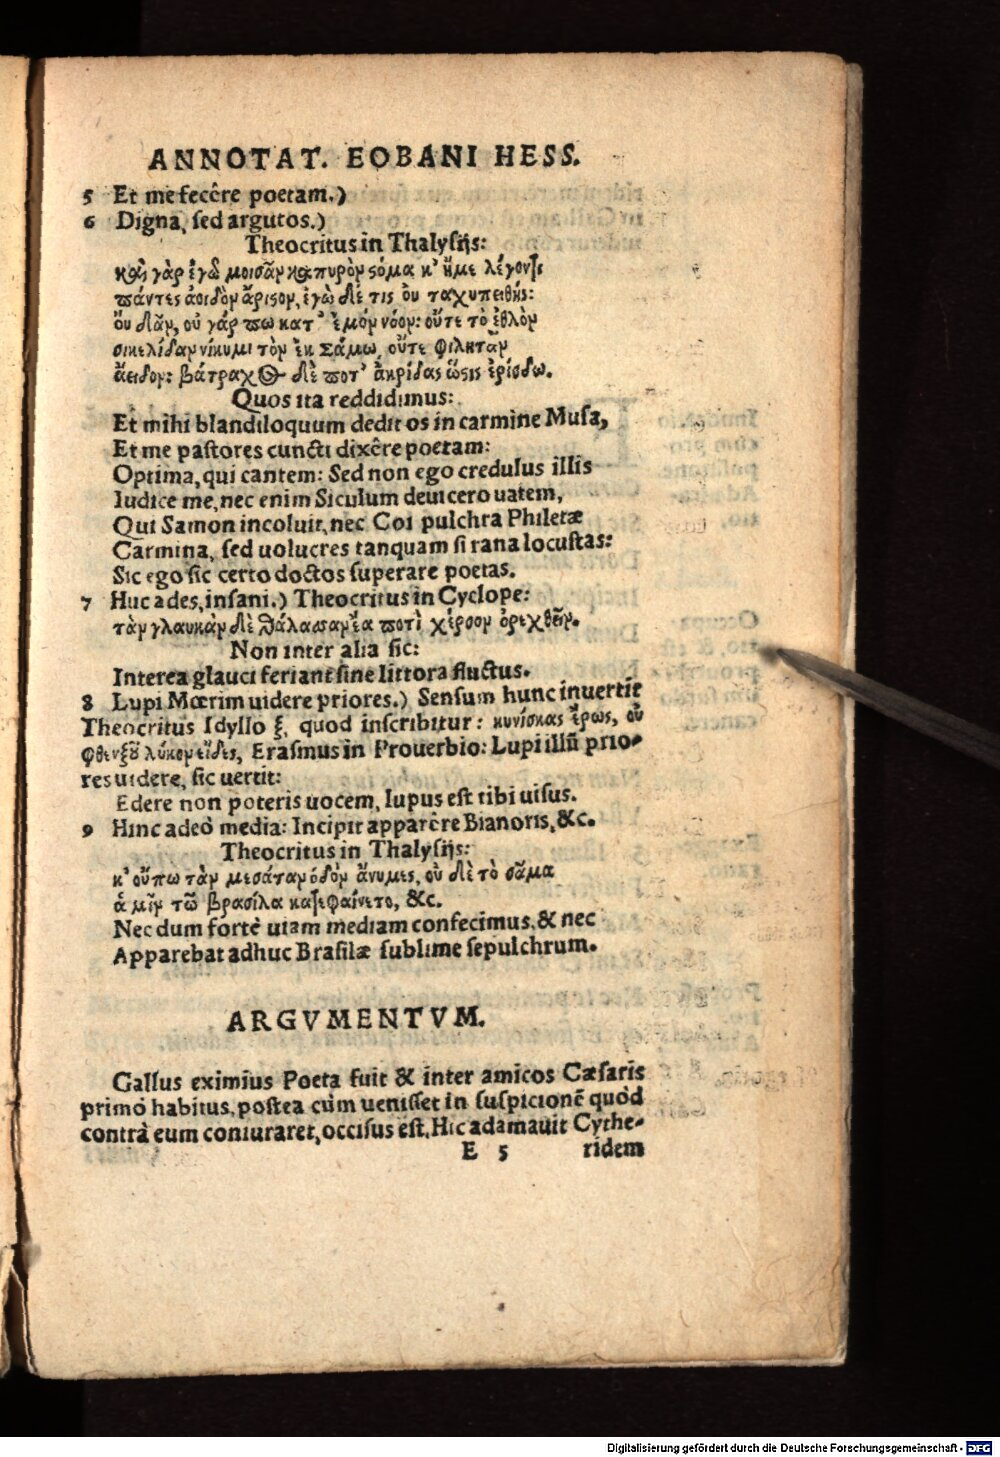 ANNOTAT. EOBANI HESS.
5 Et me fecêre poetam.)
6 Digna, sed argutos.)
Theocritus in Thalysijs:
καὶ γὰρ ἐγὼ μοισᾶν καπυρὸν ςόμα κ' ἤμε λέγοντι
πάντες ἀοιδὸν ἄριςον, ἐγὼ δέ τις οὐ ταχυπειθής:
οὐ δᾶν, οὐ γάρ πω κατ' ἐμὸν νόον: οὔτε τὸ ἐθλὸν
σικελίδαν νίκυμι τὸν ἐκ Σάμω, οὔτε Φιλητᾶν
ἀείδον: βάτραχος δὲ ποτ' ἀκρίδας ὥςις ἐρίσδω.
Quos ita reddidimus:
Et mihi blandiloquum dedit os in carmine Musa,
Et me pastores cuncti dixêre poetam:
Optima, qui cantem: Sed non ego credulus illis
Iudice me, nec enim Siculum deuicero uatem,
Qui Samon incoluit, nec Coi pulchra Philetæ
Carmina, sed uolucres tanquam si rana locustas:
Sic ego sic certo doctos superare poetas.
7 Huc ades, insani.) Theocritus in Cyclope:
τὰν γλαυκὰν δὲ θάλασσαν ἔα ποτὶ χέρσον ὀρεχθῆν.
Non inter alia sic:
Interea glauci feriant sine littora fluctus.
8 Lupi Mœrim uidere priores.) Sensum hunc inuertit
Theocritus Idyllo ξ, quod inscribitur: κυνίσκας ἔρως, οὐ
φθεγξῇ λύκον εἶδες, Erasmus in Prouerbio: Lupi illũ prio-
res uidere, sic uertit:
Edere non poteris uocem, lupus est tibi uisus.
9 Hinc adeò media: Incipit apparêre Bianoris, &c.
Theocritus in Thalysijs:
κ' οὔπω τὰν μεσάταν ὁδὸν ἄνυμες, οὐ δὲ τὸ σᾶμα
ἁ μῖν τῶ βρασίλα κατεφαίνετο, &c.
Nec dum fortè uiam mediam confecimus, & nec
Apparebat adhuc Brasilæ sublime sepulchrum.
ARGVMENTVM.
Gallus eximius Poeta fuit & inter amicos Cæsaris
primò habitus, postea cùm uenisset in suspicionẽ quòd
contrà eum coniuraret, occisus est. Hic adamauit Cythe-
E 5 ridem
Digitalisierung gefördert durch die Deutsche Forschungsgemeinschaft - DFG